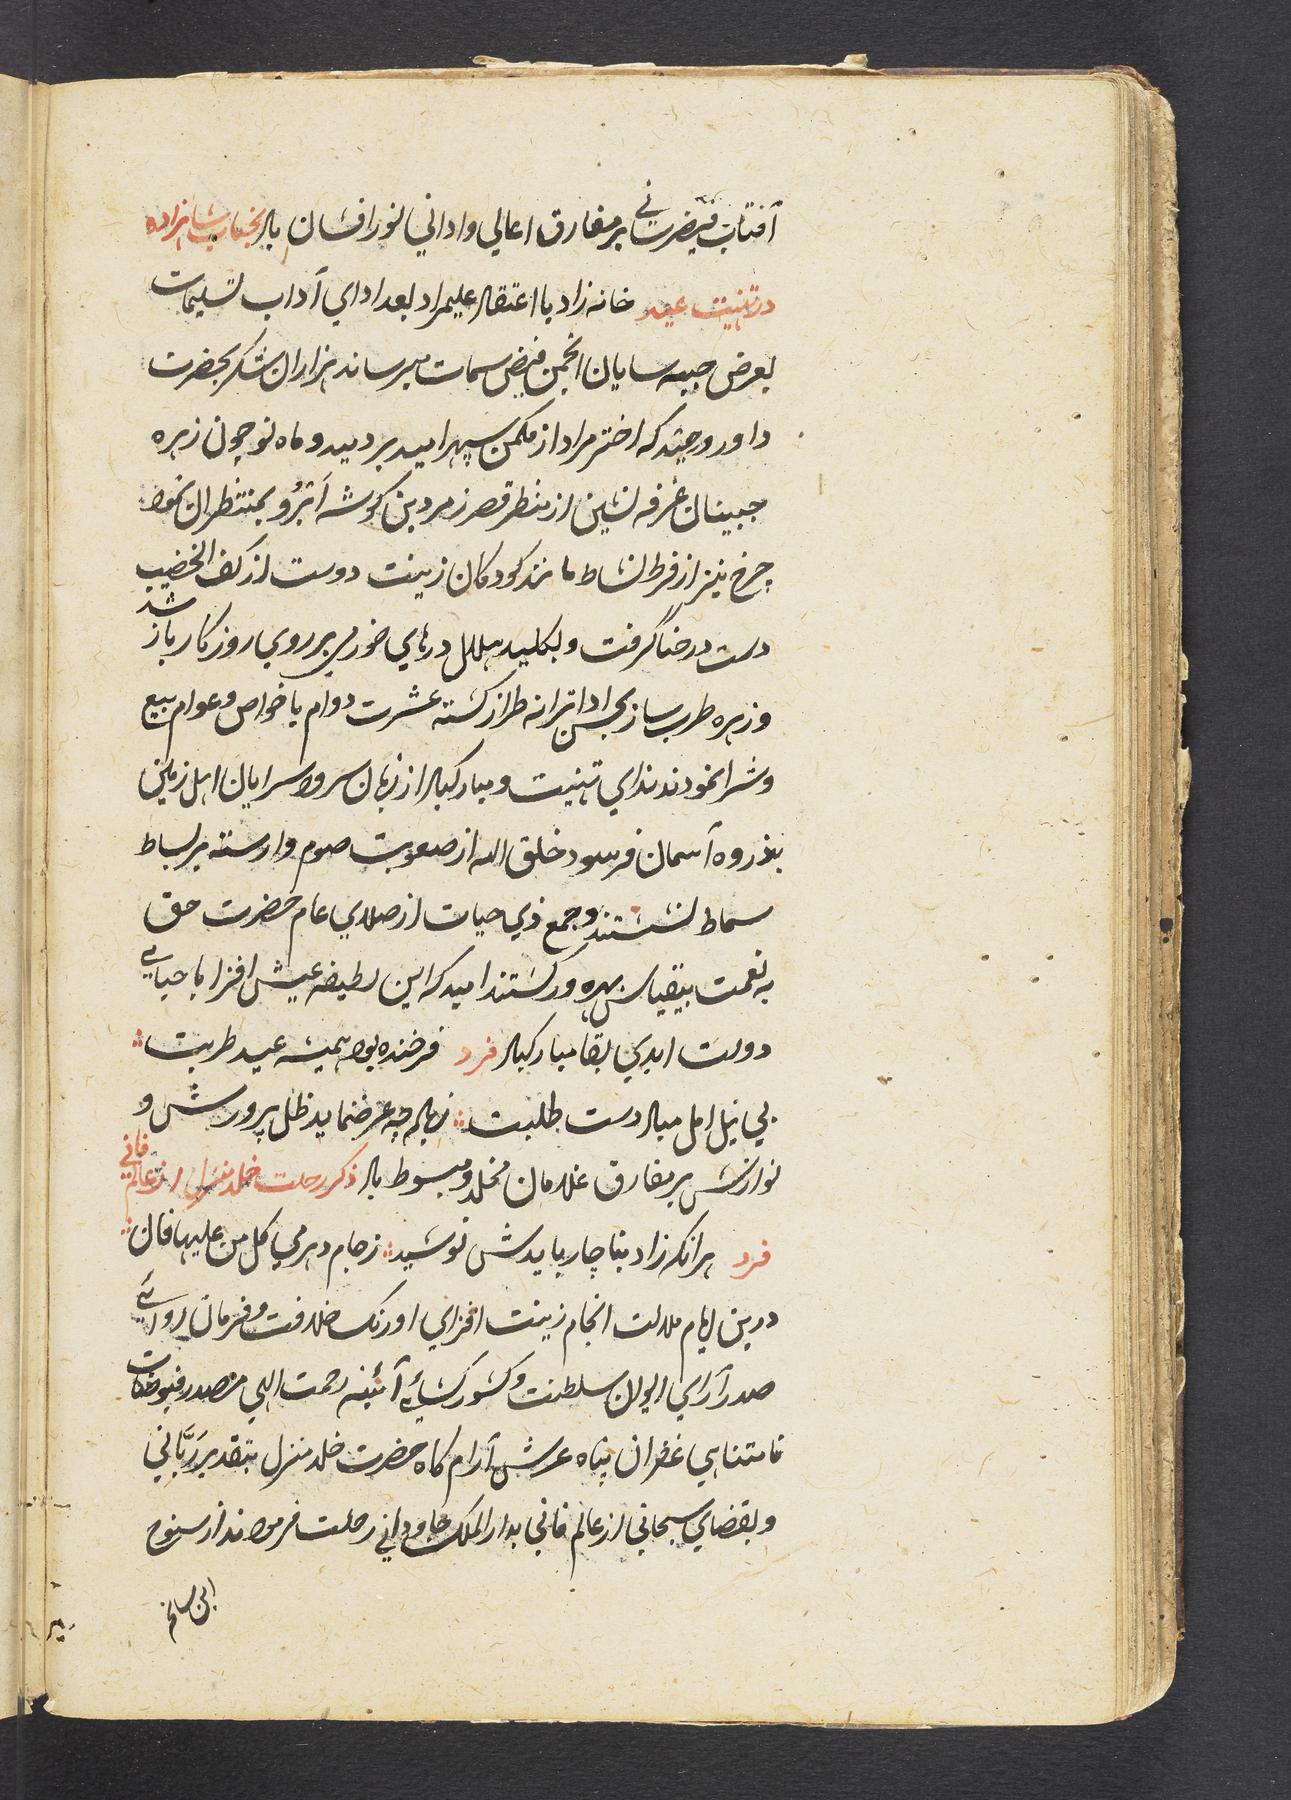 آفتاب فیض رسانی بر مفارق اعالی و ادانی نور افشان باد بجناب شاهزاده
در تهنیت عید خانه زاد با اعتقاد علیمراد بعد ادای آداب تسلیمات
بعرض جبهه سایان انجمن فیض سمات میرساند هزاران شکر بحضرت
داور که اختر مراد از مکمن سپهر امید بر دمید و ماه نو چون زهره
جبینان غرفه نشین از منظر قصر زمردین گوشه ابرو بمنتظران نمود
چرخ نیز از فرط نشاط مانند کودکان زینت دوست از کف الخضیب
دست در حنا گرفت و بکلید هلال درهای خورمی بر روی روزگار باز شد
و زهره طرب ساز بحسن ادا ترانه طراز گشته عشرت دوام با خواص و عوام بیع
و شرا نمودند ندای تهنیت و مبارکباد از زبان سرود سرایان اهل زمین
بذروه آسمان فرسود خلق الله از صعوبت صوم وارسته بر بساط
سماط نشستند و جمع ذی حیات از صلای عام حضرت حق
به نعمت بیقیاس بهره ور گشتند امید که این عیش افزا با حیاتی
دولت ابدی بقا مبارکباد فرد فرخنده بود همیشه عید طربت
بی نیل امل مباد دست طلبت زیاده چه عرض نماید ظل پرورش و
نوازش بر مفارق غلامان مخلد و مبسوط باد ذکر رحلت خلد منزل از عالم فانی
فرد هر آنکه زاد بناچار بایدش نوشید ز جام دهر می کل من علیها فان
درین ایام ملالت انجام زینت افزای اورنگ خلافت و فرمان روائی
صدر آرای ایوان سلطنت و کشور کشائی آئینه رحمت الهی مصدر فیوضات
نامتناهی غفران پناه عرش آرام گاه حضرت خلد منزل بتقدیر ربّانی
و بقضای سبحانی از عالم فانی بدار الملک جاودانی رحلت فرمودند از سنوح
این سانحه